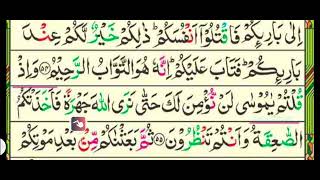 اِلٰى بَارِىِٕكُمْ فَاقْتُلُوْۤا اَنْفُسَكُمْ ؕ ذٰلِكُمْ خَيْرٌ لَّكُمْ عِنْدَ
بَارِىِٕكُمْ ؕ فَتَابَ عَلَيْكُمْ ؕ اِنَّهٗ هُوَ التَّوَّابُ الرَّحِيْمُ ﴿۵۴﴾ وَاِذْ
قُلْتُمْ يٰمُوْسٰى لَنْ نُّؤْمِنَ لَكَ حَتّٰى نَرَى اللّٰهَ جَهْرَةً فَاَخَذَتْكُمُ
الصّٰعِقَةُ وَاَنْتُمْ تَنْظُرُوْنَ ﴿۵۵﴾ ثُمَّ بَعَثْنٰكُمْ مِّنْۢ بَعْدِ مَوْتِكُمْ